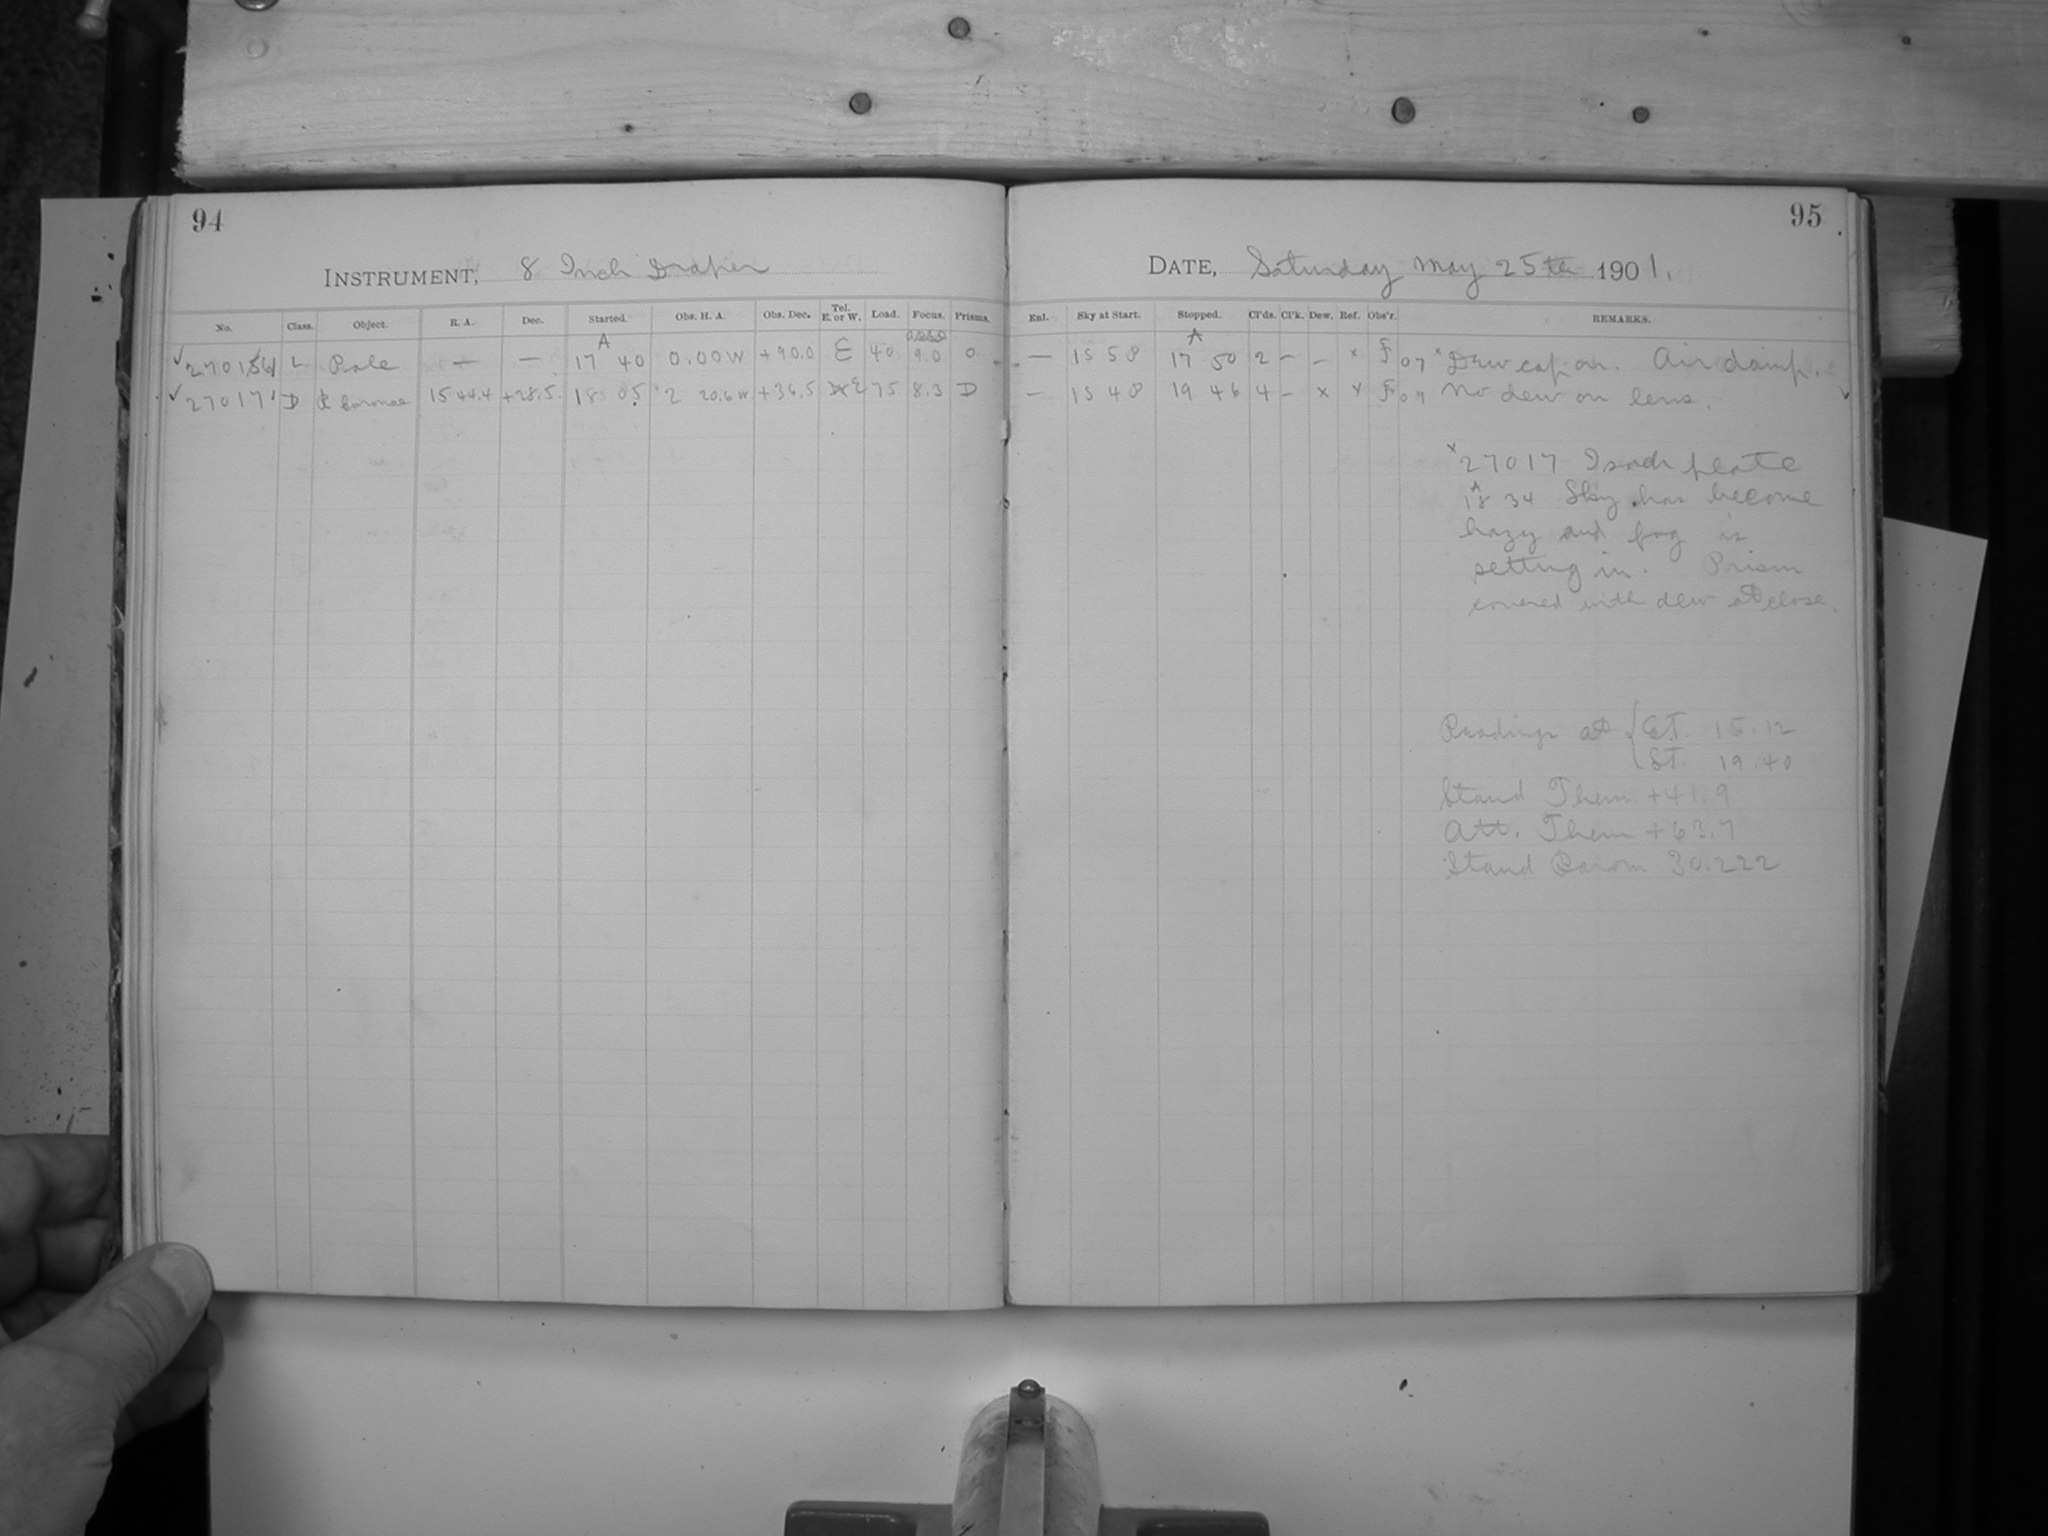 94
INSTRUMENT, 8 Inch Draper
No. Class. Object. R. A. Dec. Started. Obs. H. A. Obs. Dec. Tel. E. or W. Load. Focus. Prisms.
L Pole — — 17 40 0.00 W +90.0 E 40 9.0 0
27017 D R Coronae 15 44.4 +28.5 18 05 2 20.6 W +36.5 E 75 8.3 D
95
DATE, Saturday May 25th 1901.
Enl. Sky at Start. Stopped. Cl'ds. Cl'k. Dew. Ref. Obs'r. REMARKS.
— 15 58 17 50 2 – – x F 07 x Dew cap on. Air damp.
— 15 48 19 46 4 – x x F 07 No dew on lens.
x 27017 Isoch plate
18 34 Sky has become
hazy and fog is
setting in. Prism
covered with dew at close.
Readings at { G.T. 15.12
S.T. 19.40
Stand Therm. +41.9
Att. Therm +63.7
Stand Barom 30.222